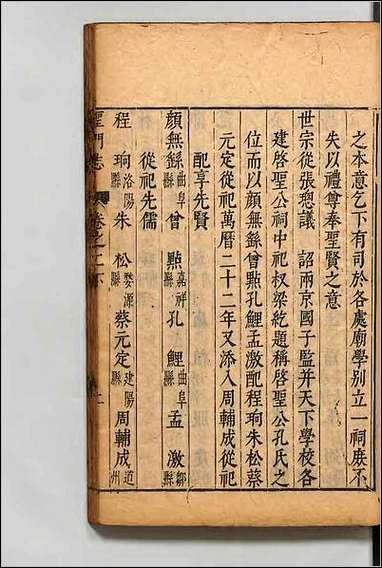 之本意乞下有司於各處廟學别立一祠庶不
失以禮尊奉聖賢之意
世宗從張璁議 詔兩京國子監并天下學校各
建啓聖公祠中祀叔梁紇題稱啓聖公孔氏之
位而以顔無繇曾點孔鯉孟激配程珦朱松蔡
元定從祀萬曆二十二年又添入周輔成從祀
配享先賢
顔無繇曲阜縣 曾 點嘉祥縣 孔 鯉曲阜縣 孟 激鄒縣
從祀先儒
程 珦洛陽縣 朱 松婺源縣 蔡元定建陽縣 周輔成道州
聖門志 卷之一下